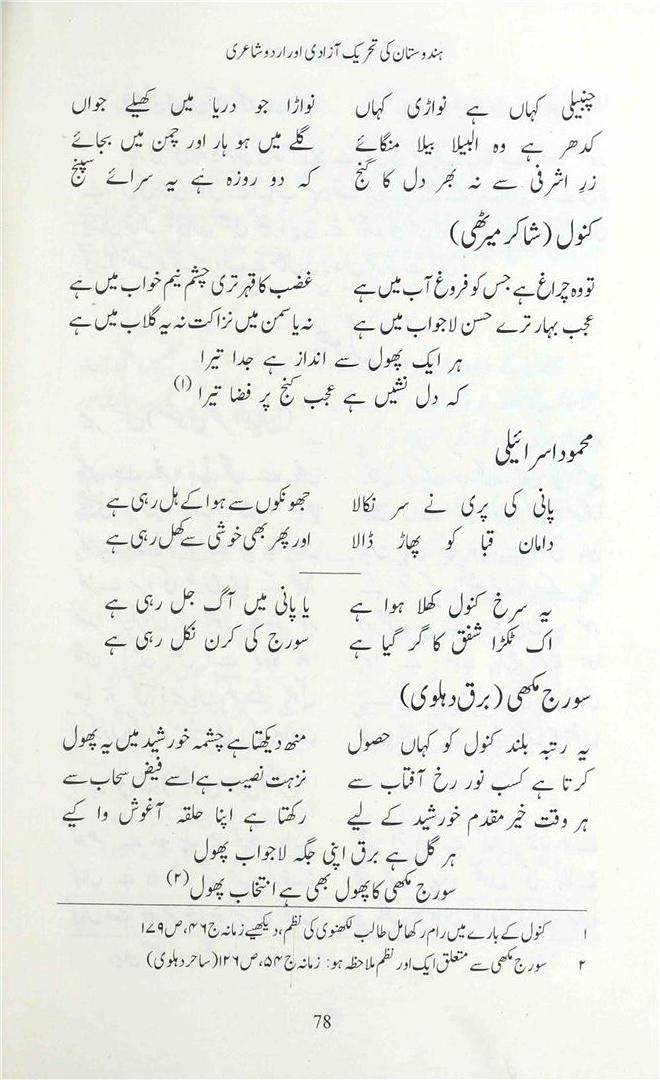 ہندوستان کی تحریک آزادی اور اردو شاعری
چنبیلی کہاں ہے نواڑی کہاں نواڑا جو دریا میں کھیلے جواں
کدھر ہے وہ البیلا بیلا منگائے گلے میں ہو ہار اور چمن میں بجائے
زر اشرفی سے نہ بھر دل کا گنج کہ دو روزہ ہے یہ سرائے سپنج
کنول (شاکر میرٹھی)
تو وہ چراغ ہے جس کو فروغ آب میں ہے غضب کا قہر تری چشم نیم خواب میں ہے
عجب بہار ترے حسن لاجواب میں ہے نہ یاسمن میں نزاکت نہ یہ گلاب میں ہے
ہر ایک پھول سے انداز ہے جدا تیرا
کہ دل نشیں ہے عجب کنج پر فضا تیرا (۱)
محمود اسرائیلی
پانی کی پری نے سر نکالا جھونکوں سے ہوا کے ہل رہی ہے
دامان قبا کو پھاڑ ڈالا اور پھر بھی خوشی سے کھل رہی ہے
یہ سرخ کنول کھلا ہوا ہے یا پانی میں آگ جل رہی ہے
اک ٹکڑا شفق کا گر گیا ہے سورج کی کرن نکل رہی ہے
سورج مکھی (برق دہلوی)
یہ رتبہ بلند کنول کو کہاں حصول منھ دیکھتا ہے چشمہ خورشید میں یہ پھول
کرتا ہے کسب نور رخ آفتاب سے نزہت نصیب ہے اسے فیض سحاب سے
ہر وقت خیر مقدم خورشید کے لیے رکھتا ہے اپنا حلقہ آغوش وا کیے
ہر گل ہے برق اپنی جگہ لاجواب پھول
سورج مکھی کا پھول بھی ہے انتخاب پھول (۲)
۱ کنول کے بارے میں رام رکھا مل طالب لکھنوی کی نظم، دیکھیے زمانہ ج ۴۶، ص ۱۷۹
۲ سورج مکھی سے متعلق ایک اور نظم ملاحظہ ہو: زمانہ ج ۵۴، ص ۱۲۶ (ساحر دہلوی)
78